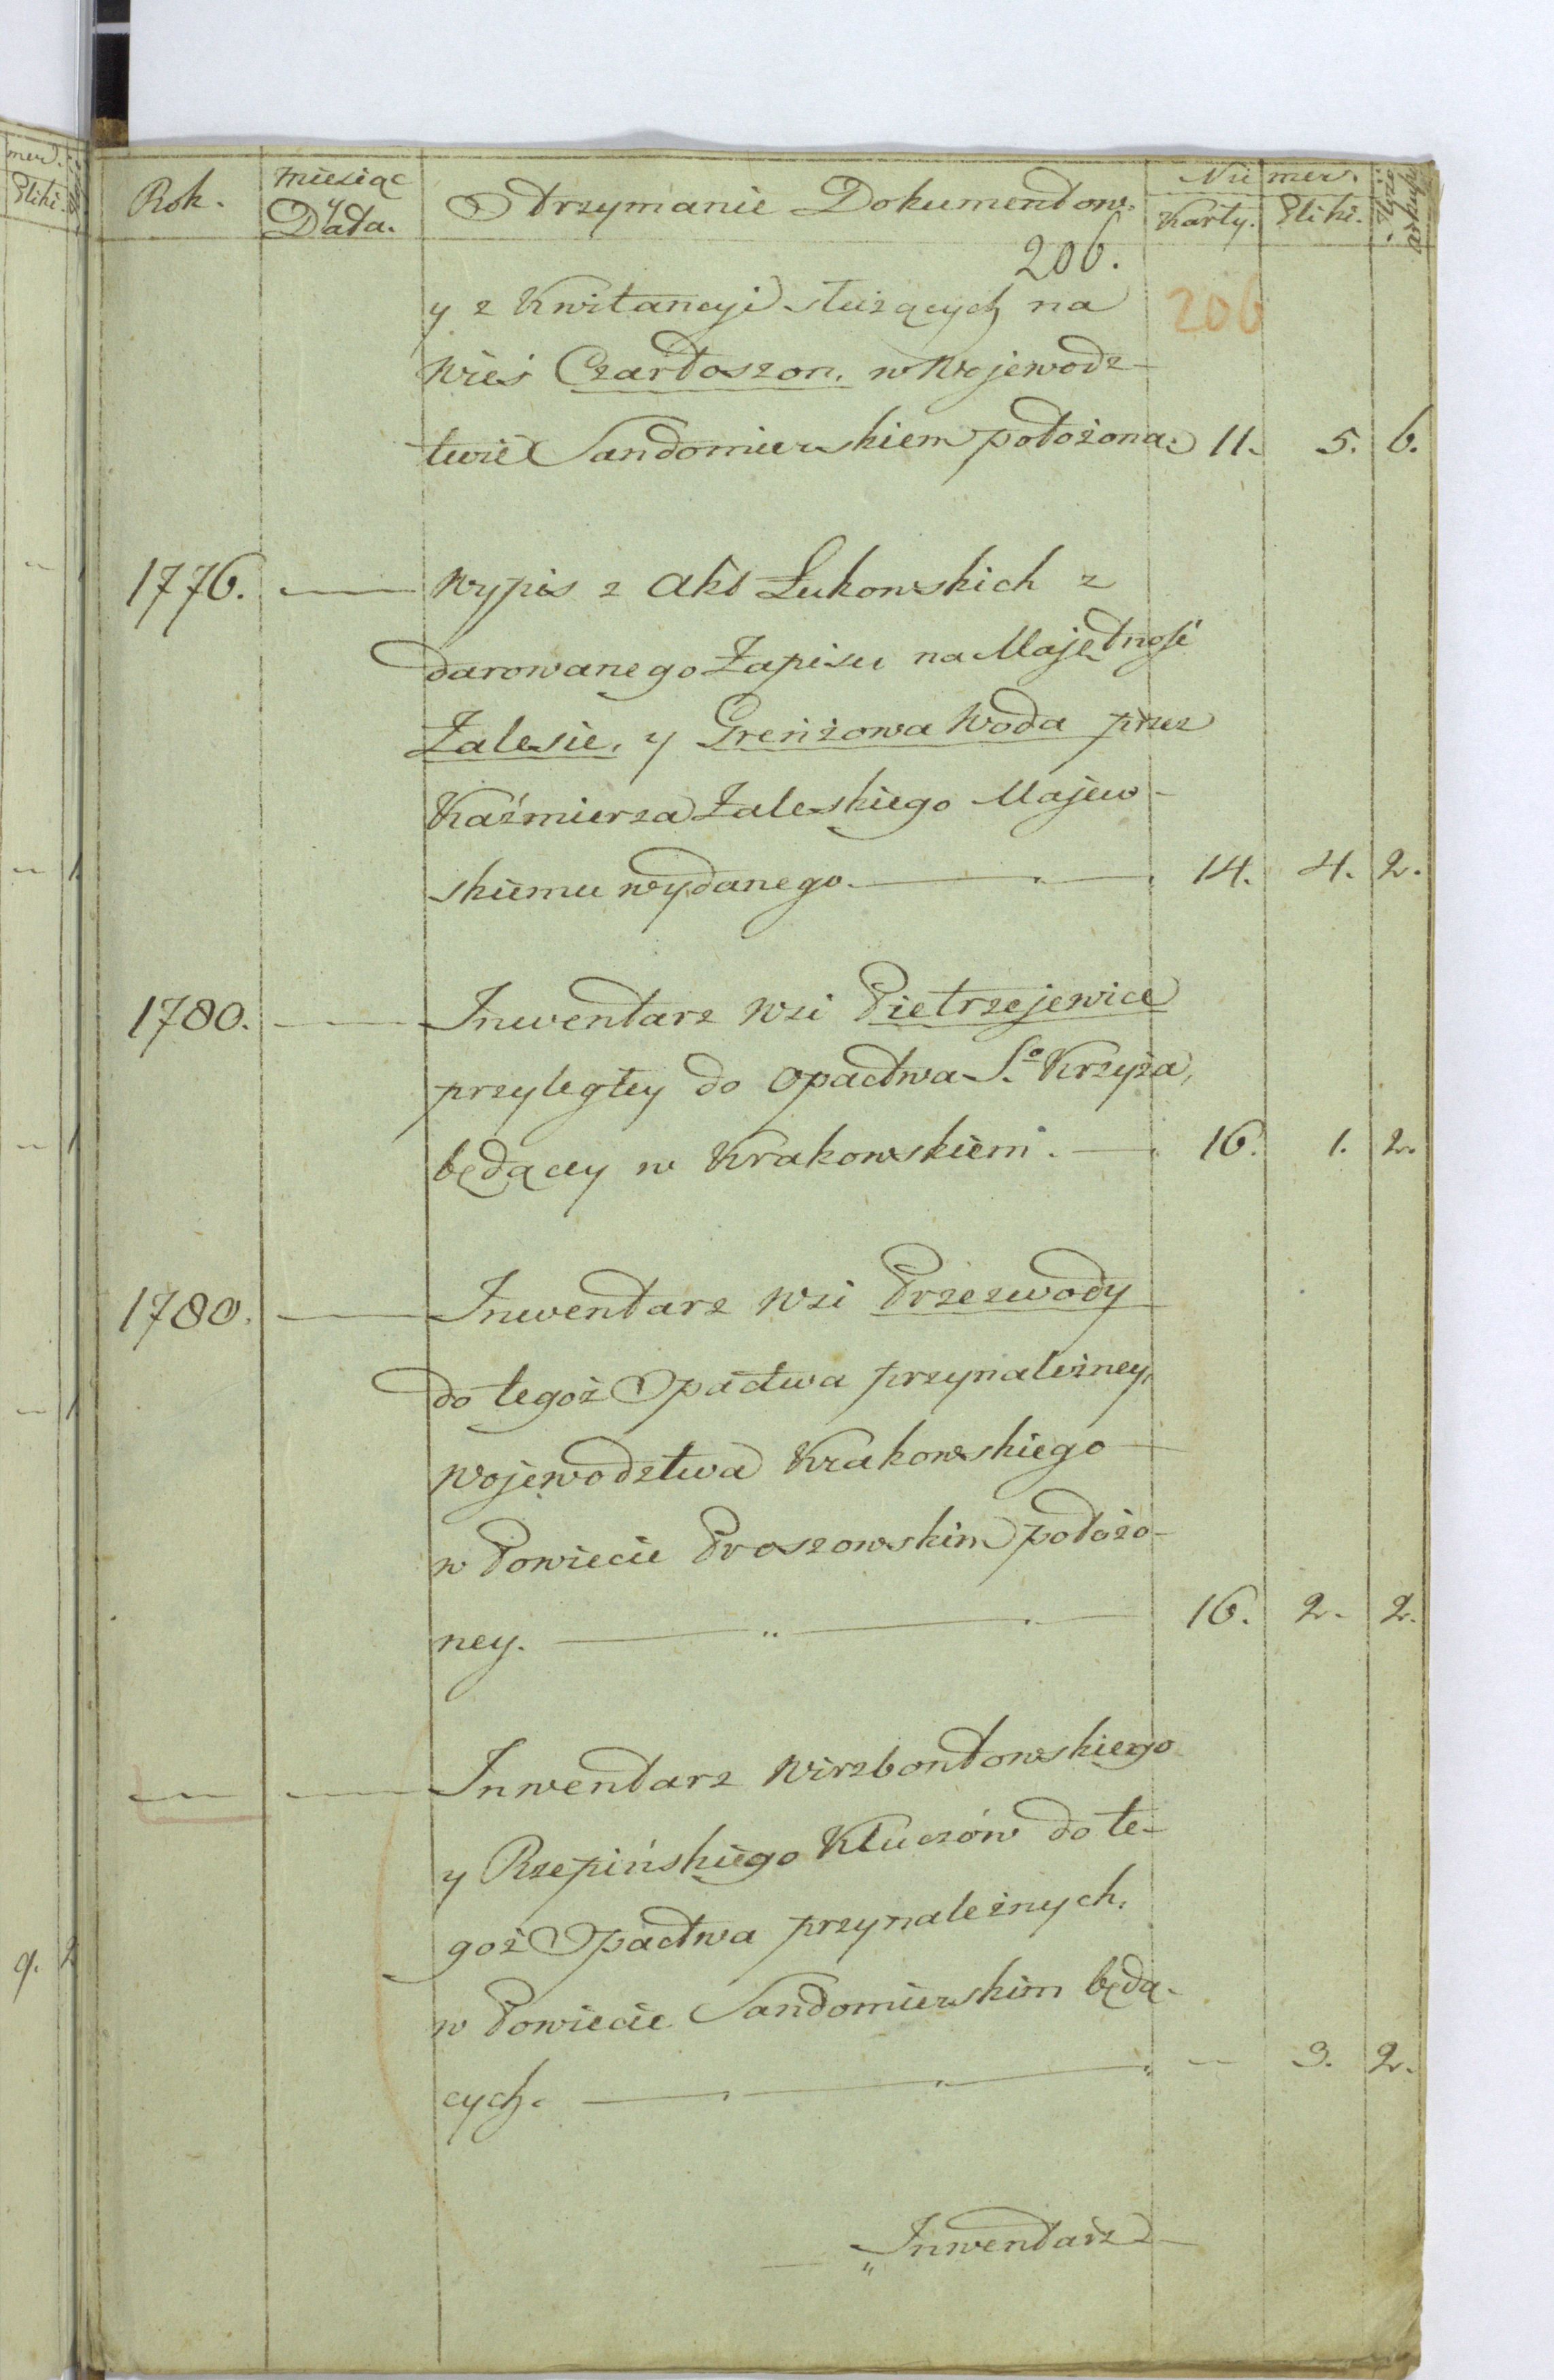 Rok.
miesiąc
y
Data.
Otrzymanie Dokumentow.
Numer.
Karty. Pliki.
206.
206
y z Kwitancyi służących na
wieś Czartoszon. w Wojewodz-
twie Sandomierskiem położona. 11. 5. 6.
1776. — Wypis z Akt Łukowskich z
darowanego Zapisu na Majętność
Zalesie, y Greńzowa Woda przez
Kaźmierza Zaleskiego Majew-
skiemu wydanego. — 14. 4. 2.
1780. — Inwentarz wsi Pietrzejewice
przyległey do Opactwa S.o Krzyża,
będącey w Krakowskiem. — 16. 1. 2.
1780. — Inwentarz wsi Przezwody
do tegoż Opactwa przynależney,
Wojewodztwa Krakowskiego
w Powiecie Proszowskim położo-
ney. — 16. 2. 2.
— — Inwentarz Wirzbontowskiego
y Rzepińskiego Kluczów do te-
goż Opactwa przynależnych,
w Powiecie Sandomierskim będą-
cych. — — 3. 2.
Inwentarz
mer.
Pliki.
1
1
1
9. 2